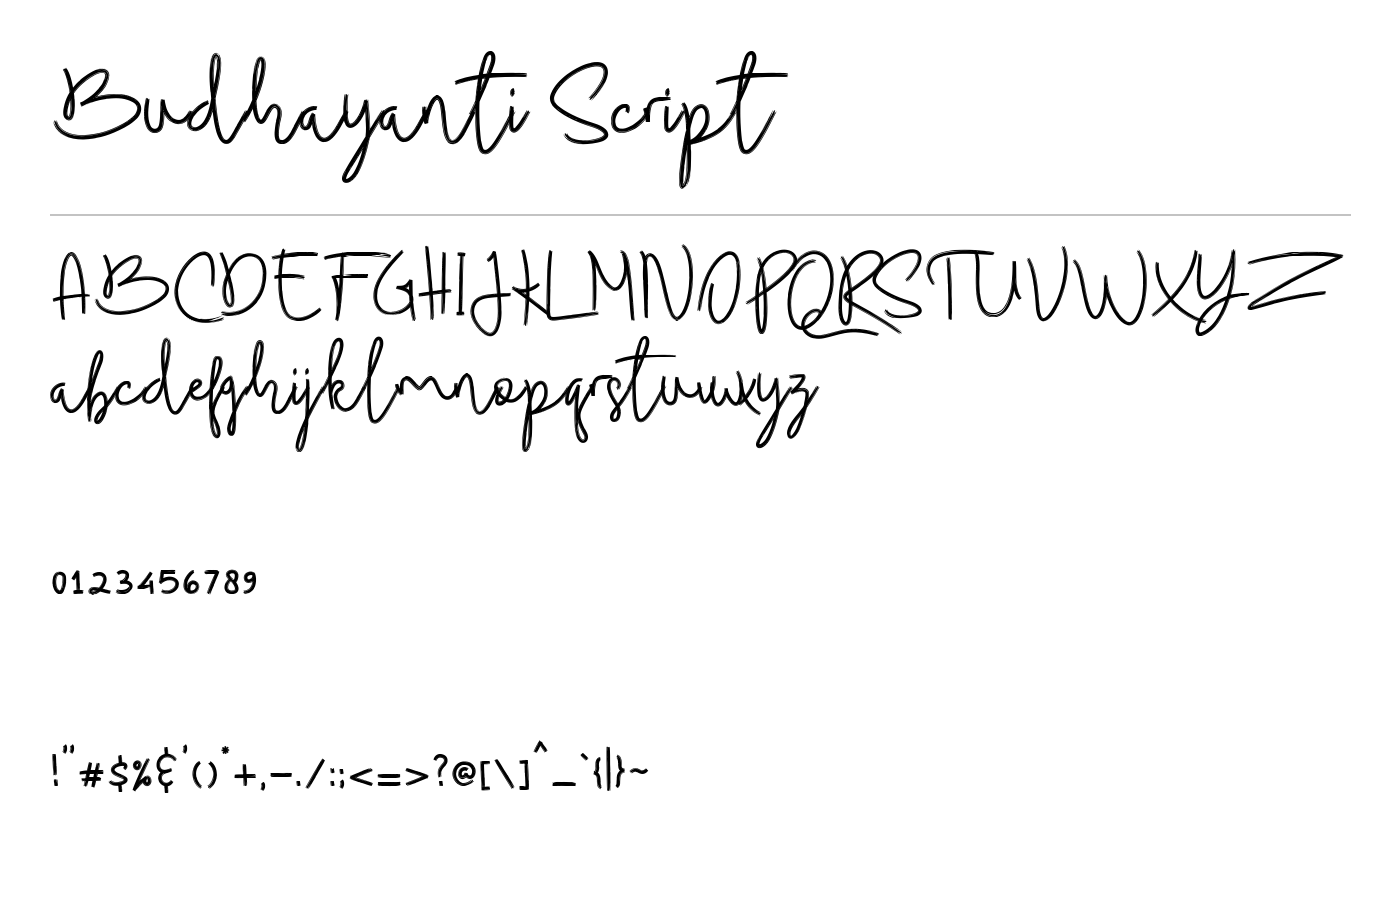 Budhayanti Script
ABCDEFGHIJKLMNOPQRSTUVWXYZ
abcdefghijklmnopqrstuvwxyz
0123456789
!"#$%&'()*+,-./:;<=>?@[\]^_`{|}~